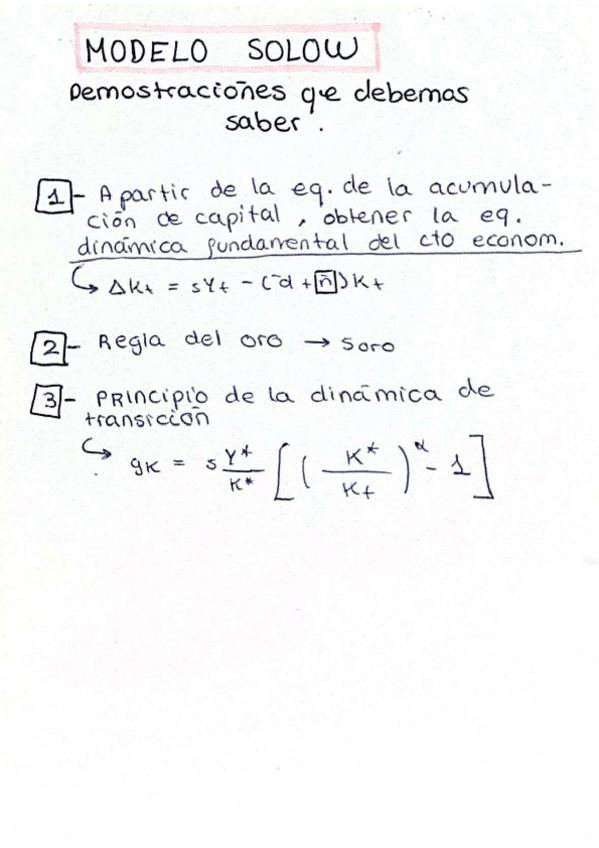 MODELO SOLOW
Demostraciones que debemos
saber.
1 - A partir de la eq. de la acumula-
ción de capital, obtener la eq.
dinámica fundamental del cto econom.
↳ ΔKt = sYt - (d̄ + n̄)Kt
2 - Regla del oro → Soro
3 - PRINCIPIO de la dinámica de
transición
↳ gK = s Y*/K* [(K*/Kt)^α - 1]